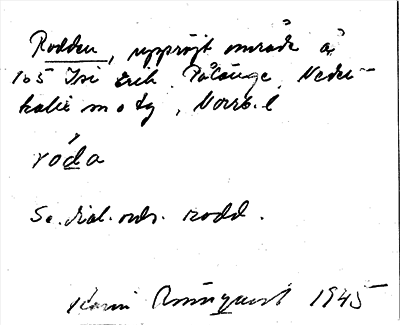 Rodden, uppröjt område å
105 Isi Erik, Pålänge, Neder-
kalix m o tg, Norrb. l
röda
Se. dial.ordb. rodd.
Karin Rönnquist 1945